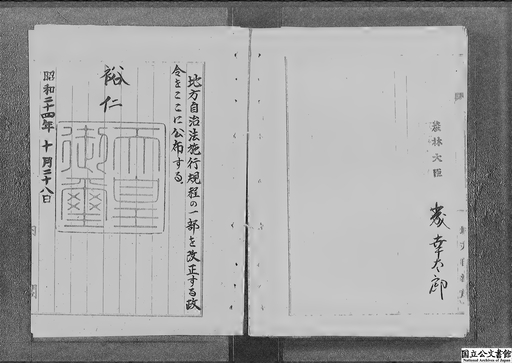 農林大臣
森幸太郎
地方自治法施行規程の一部を改正する政
令をここに公布する。
裕仁
天皇
御璽
昭和二十四年 十月二十八日
国立公文書館
National Archives of Japan